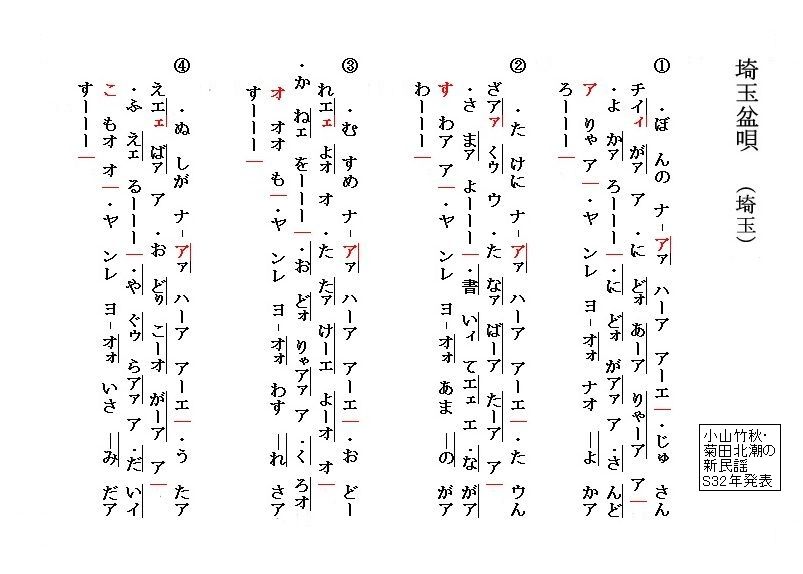 埼玉盆唄 （埼玉）
小山竹秋・
菊田北潮の
新民謡
S32年発表
①
・ぼ んの ナ-アァ ハーア アーエ ・じゅ さん
チイィ がァ ア ・に どォ あーア りゃーア ア
・よ かァ ろーーー ・に どォ がアァ ア ・さ んど
ア りゃ ア ・ヤ ンレ ヨ-オォ ナオ ＝よ かア
ろーーー
②
・た けに ナ-アァ ハーア アーエ ・た ウん
ざアァ くゥ ウ ・た なァ ばーア たーア ア
・さ まァ よーーー ・書 いィ てエェ エ ・な がア
す わア ア ・ヤ ンレ ヨ-オォ あま ＝の がア
わーーー
③
・む すめ ナ-アァ ハーア アーエ ・お どー
れエェ よォ オ ・た たァ けーエ よーオ オ
・か ねェ をーーー ・お どォ りゃアァ ア ・く ろオ
オ オオ も ・ヤ ンレ ヨ-オォ わす ＝れ さア
すーーー
④
・ぬ しが ナ-アァ ハーア アーエ ・う たア
えエェ ばァ ア ・お どり こーオ がーア ア
・ふ えェ るーーー ・や ぐゥ らアァ ア ・だ いイ
こ もオ オ ・ヤ ンレ ヨ-オォ いさ ＝み だア
すーーー